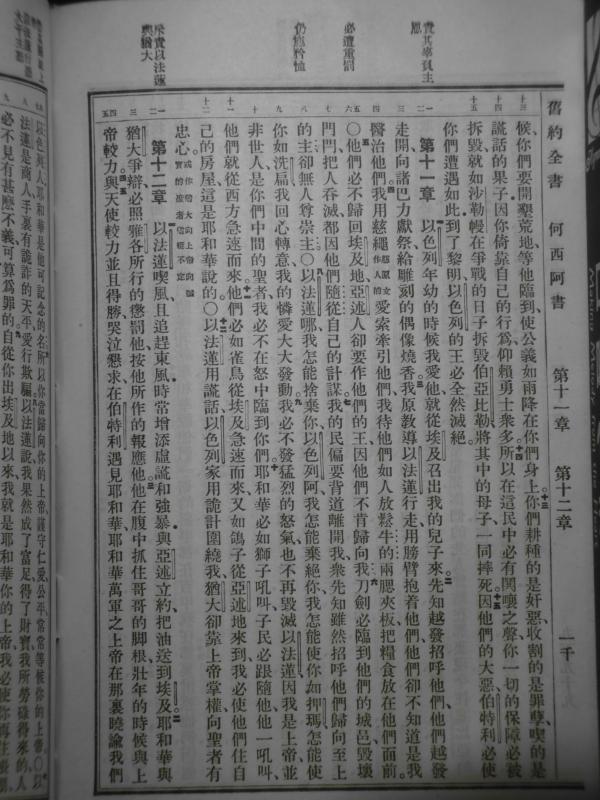 舊約全書　何西阿書　第十一章　第十二章　一千
候你們要開墾荒地等他臨到使公義如雨降在你們身上你們耕種的是奸惡收割的是罪孽喫的是
謊話的果子因你倚靠自己的行為仰賴勇士衆多所以在這民中必有鬨嚷之聲你一切的保障必被
拆毀就如沙勒幔在爭戰的日子拆毀伯亞比勒將其中的母子一同摔死因他們的大惡伯特利必使
你們遭遇如此到了黎明以色列的王必全然滅絕
第十一章 以色列年幼的時候我愛他就從埃及召出我的兒子來先知越發招呼他們他們越發
走開向諸巴力獻祭給雕刻的偶像燒香我原教導以法蓮行走用膀臂抱着他們他們卻不知道是我
醫治他們我用慈繩愛索牽引他們我待他們如人放鬆牛的兩腮夾板把糧食放在他們面前
〇他們必不歸回埃及地亞述人卻要作他們的王因他們不肯歸向我刀劍必臨到他們的城邑毀壞
門閂把人吞滅都因他們隨從自己的計謀我的民偏要背道離開我衆先知雖然招呼他們歸向至上
的主卻無人尊崇主〇以法蓮哪我怎能捨棄你以色列阿我怎能棄絕你我怎能使你如押瑪怎能使
你如洗扁我回心轉意我的憐愛大大發動我必不發猛烈的怒氣也不再毀滅以法蓮因我是上帝並
非世人是你們中間的聖者我必不在怒中臨到你們耶和華必如獅子吼叫子民必跟隨他他一吼叫
他們就從西方急速而來他們必如雀鳥從埃及急速而來又如鴿子從亞述地來到我必使他們住自
己的房屋這是耶和華說的〇以法蓮用謊話以色列家用詭計圍繞我猶大卻靠上帝掌權向聖者有
忠心
第十二章 以法蓮喫風且追趕東風時常增添虛謊和強暴與亞述立約把油送到埃及耶和華與
猶大爭辯必照雅各所行的懲罰他按他所作的報應他他在腹中抓住哥哥的腳根壯年的時候與上
帝較力與天使較力並且得勝哭泣懇求在伯特利遇見耶和華耶和華萬軍之上帝在那裏曉諭我們
以色列人耶和華是他可記念的名所以你當歸向你的上帝謹守仁愛公平常常等候你的上帝〇以
法蓮是商人手裏有詭詐的天平愛行欺騙以法蓮說我果然成了富足得了財寶我所勞碌得來的人
必不見有甚麼不義可算為罪的自從你出埃及地以來我就是耶和華你的上帝我必使你再住帳棚
責其辜負主恩
必遭重罰
仍施矜恤
斥責以法蓮與猶大